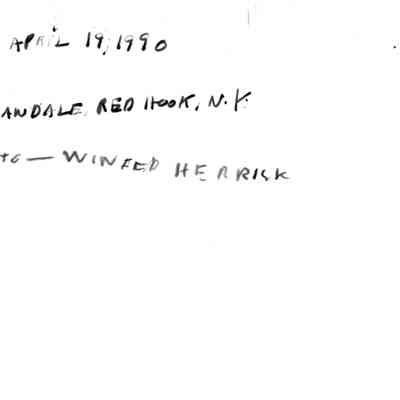 APRIL 19, 1990
ANDALE, RED HOOK, N.Y.
TO — WINFED HERRISK